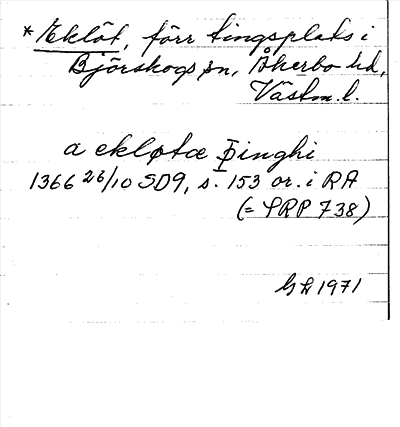 *Eklöt, förr tingsplats i
Björskogs sn, Åkerbo hd,
Västm. l.
a ekløtæ þinghi
1366 26/10 SD9, s. 153 or. i RA
(= SRP 738)
1971